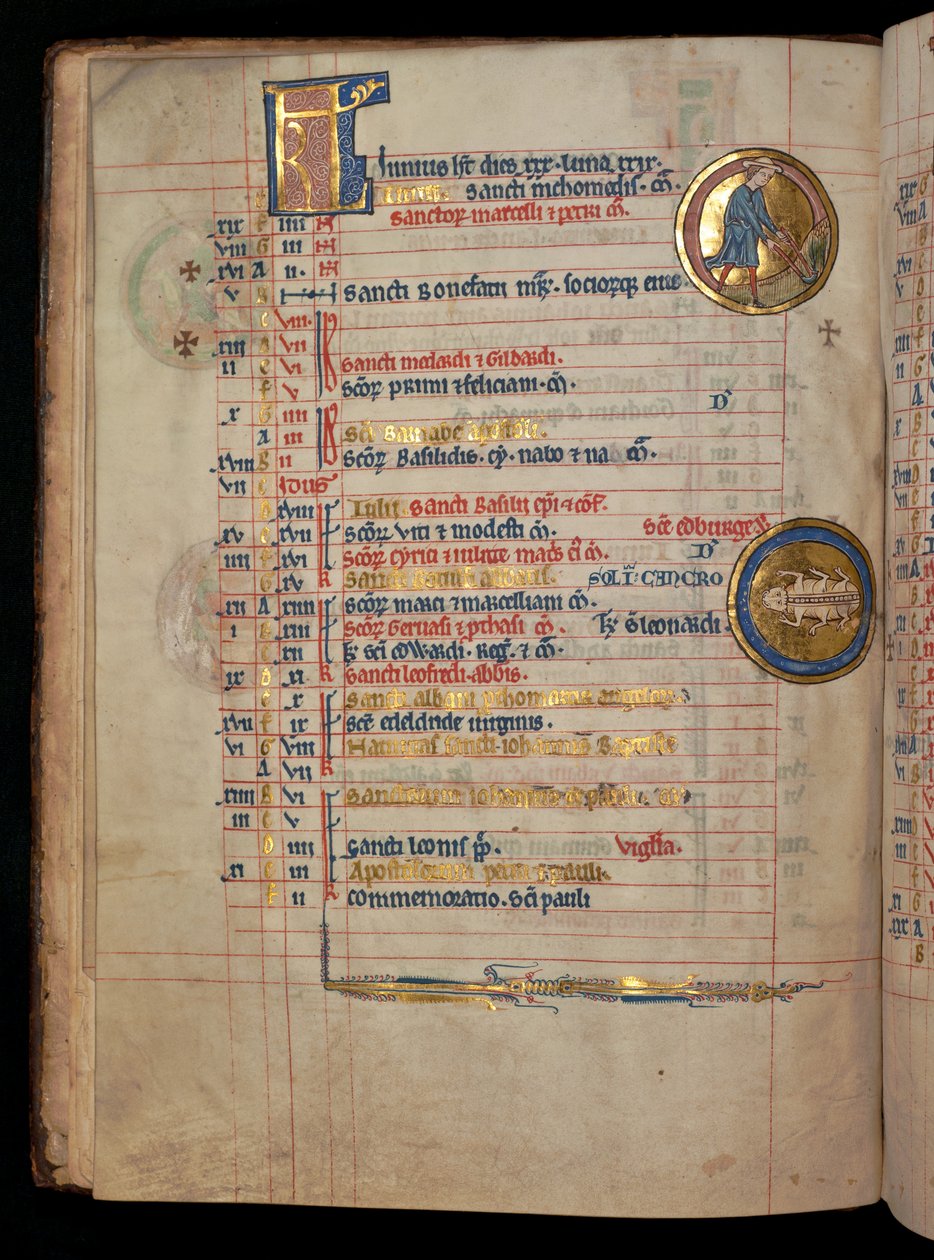 KL Iunius ht dies xxx. luna xxix.
e Iunii. Sancti nichomedis. m̃.
xix f iiii N Sanctoꝝ marcelli ⁊ petri m̃.
viii G iii N
xvi A ii. N
v B Sancti Bonefatii mr̃. socioꝝq eius
c viii.
xiii d vii
ii e vi Sancti medardi ⁊ Gildardi.
f v Scõꝝ primi ⁊ feliciani. m̃.
x G iiii D̃
A iii Sc̃i Barnabe apostoli.
xviii B ii Scõꝝ Basilidis. cy. nabo ⁊ na m̃.
vii c idus
d xviii Iulii. Sancti Basilii ep̃i ⁊ cõf.
xv e xvii Scõꝝ viti ⁊ modesti m̃. Sc̃e edburge
iiii f xvi Scõꝝ cyrici ⁊ iulitte m̃. D̃
G xv Sancti abbatis. SOL Ĩ CANCRO
xii A xiiii Scõꝝ marci ⁊ marcelliani m̃.
i B xiii Scõꝝ Geruasi ⁊ ꝓthasi m̃. S̃ leonardi
c xii Sc̃i edwardi. Reg̃. ⁊ m̃.
ix d xi. Sancti leofredi. abbis.
e x Sancti albani
xvii f ix Sc̃e edeldride uirginis.
vi G viii Natiuitas sancti iohannis Baptiste
A vii
xiiii B vi Sanctorum iohannis ⁊ pauli.
iii c v
d iiii Sancti leonis pp̃. Viglĩa.
xi e iii Apostolorum petri ⁊ pauli.
f ii commemoratio. Sc̃i pauli